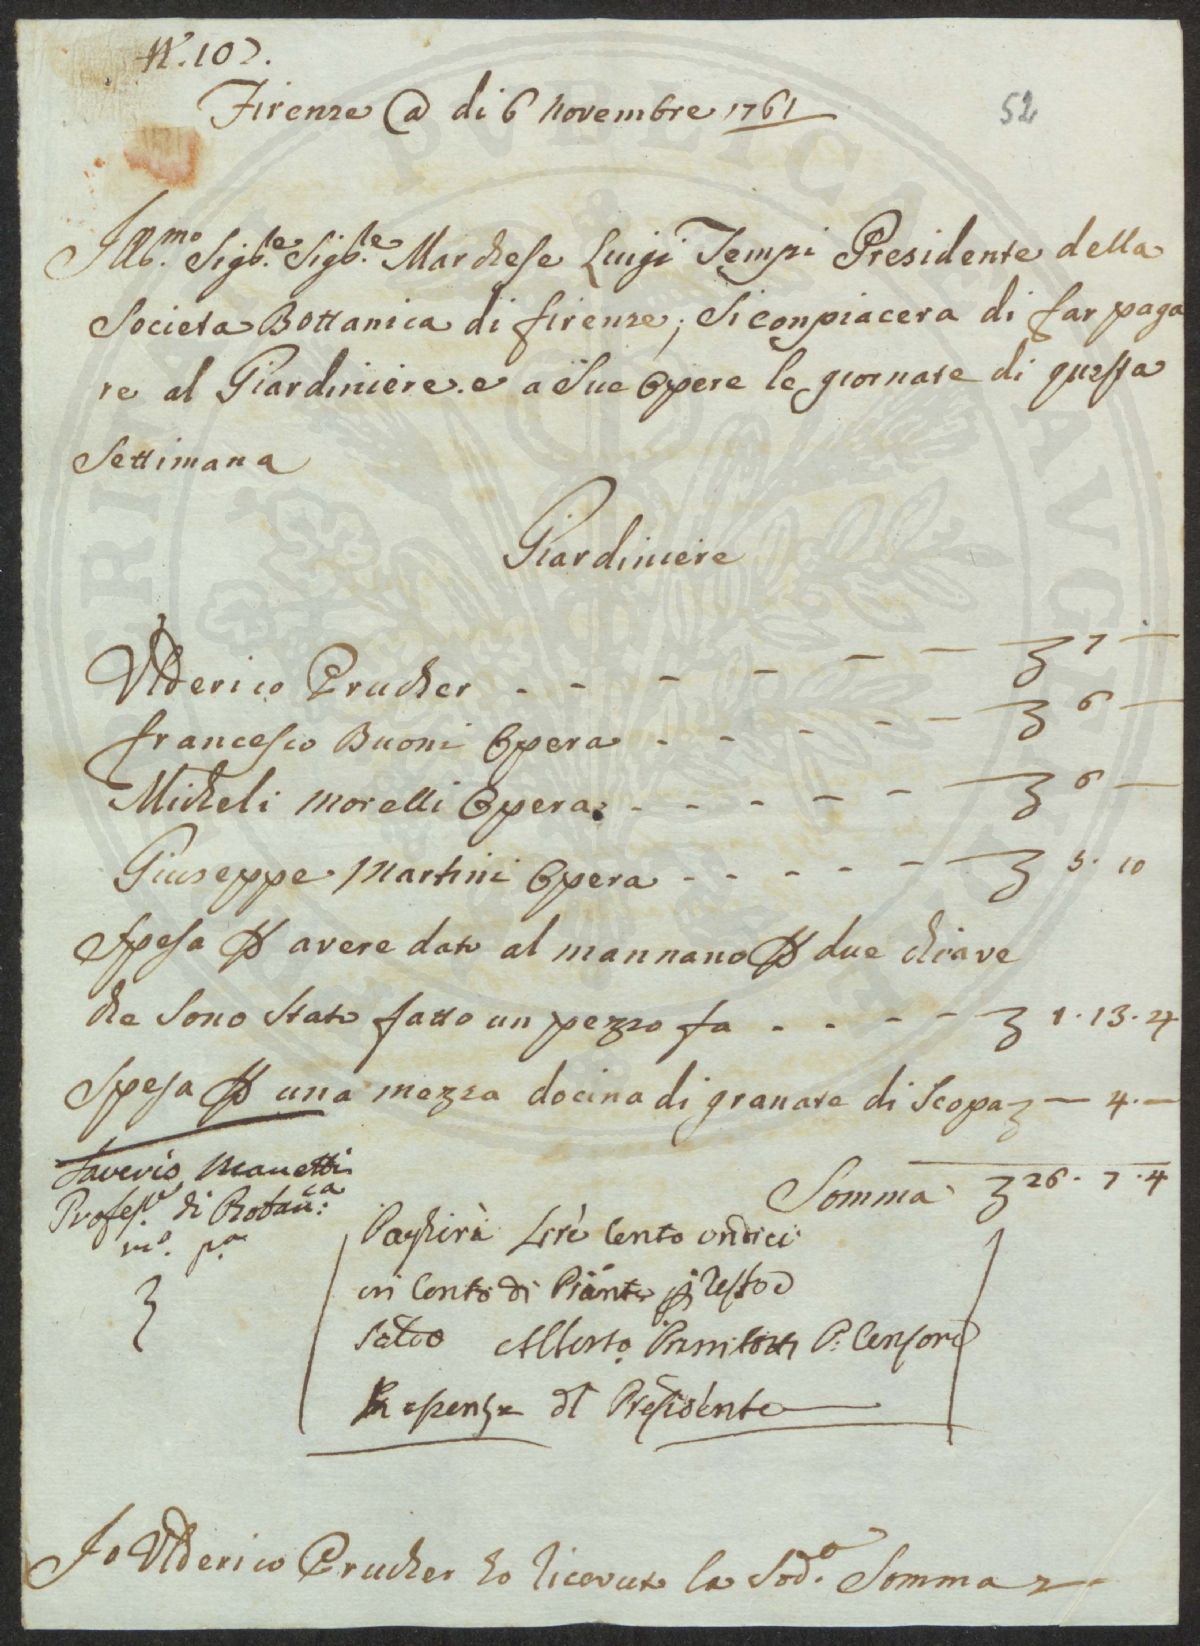 N. 107.
Firenze @ di 6 Novembre 1761
52
Illmo. Sigle. Sigle. Marchese Luigi Tempi Presidente della
Societa Bottanica di firenze; Si conpiacera di far paga
re al Giardiniere. e a Sue Opere le giornate di questa
Settimana
Giardiniere
Vlderico Prucher - - - - - - 7 —
francesco Buoni Opera - - - - - 6 —
Micheli Morelli Opera - - - - - - 6 —
Giuseppe Martini Opera - - - - - 5. 10
Spesa P avere dato al mannano P due chiave
che Sono Stato fatto un pezzo fa - - - - - 1. 13. 4
Spesa P una mezza docina di granate di Scopa — 4. —
Saverio Manetti
Profess.e di Botan:ca
mo. pa.
Somma 26. 7. 4
Pagherà Lire Cento undici
in Conto di Piante
Saldo Alberto P. Censore
di Presidente
Io Vlderico Prucher ho ricevuto la Sod.a Somma
PVBLICAE
AVGENDAE